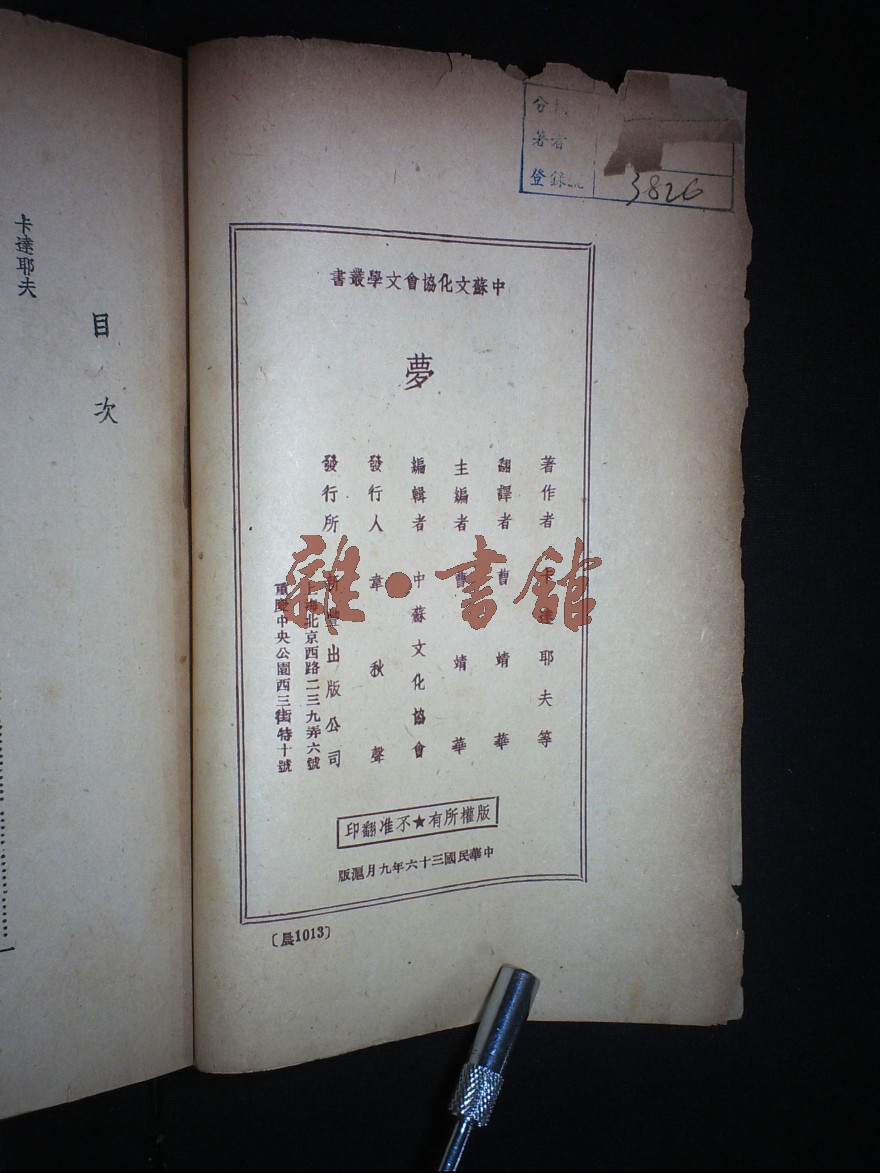 分類
著者
登錄號
3826
中蘇文化協會文學叢書
夢
著作者 卡達耶夫等
翻譯者 曹靖華
主編者 曹靖華
編輯者 中蘇文化協會
發行人 韋秋聲
發行所 新豐出版公司
上海北京西路二三九弄六號
重慶中央公園西三街特十號
版權所有★不准翻印
中華民國三十六年九月滬版
〔晨1013〕
目次
卡達耶夫
一
雜·書館